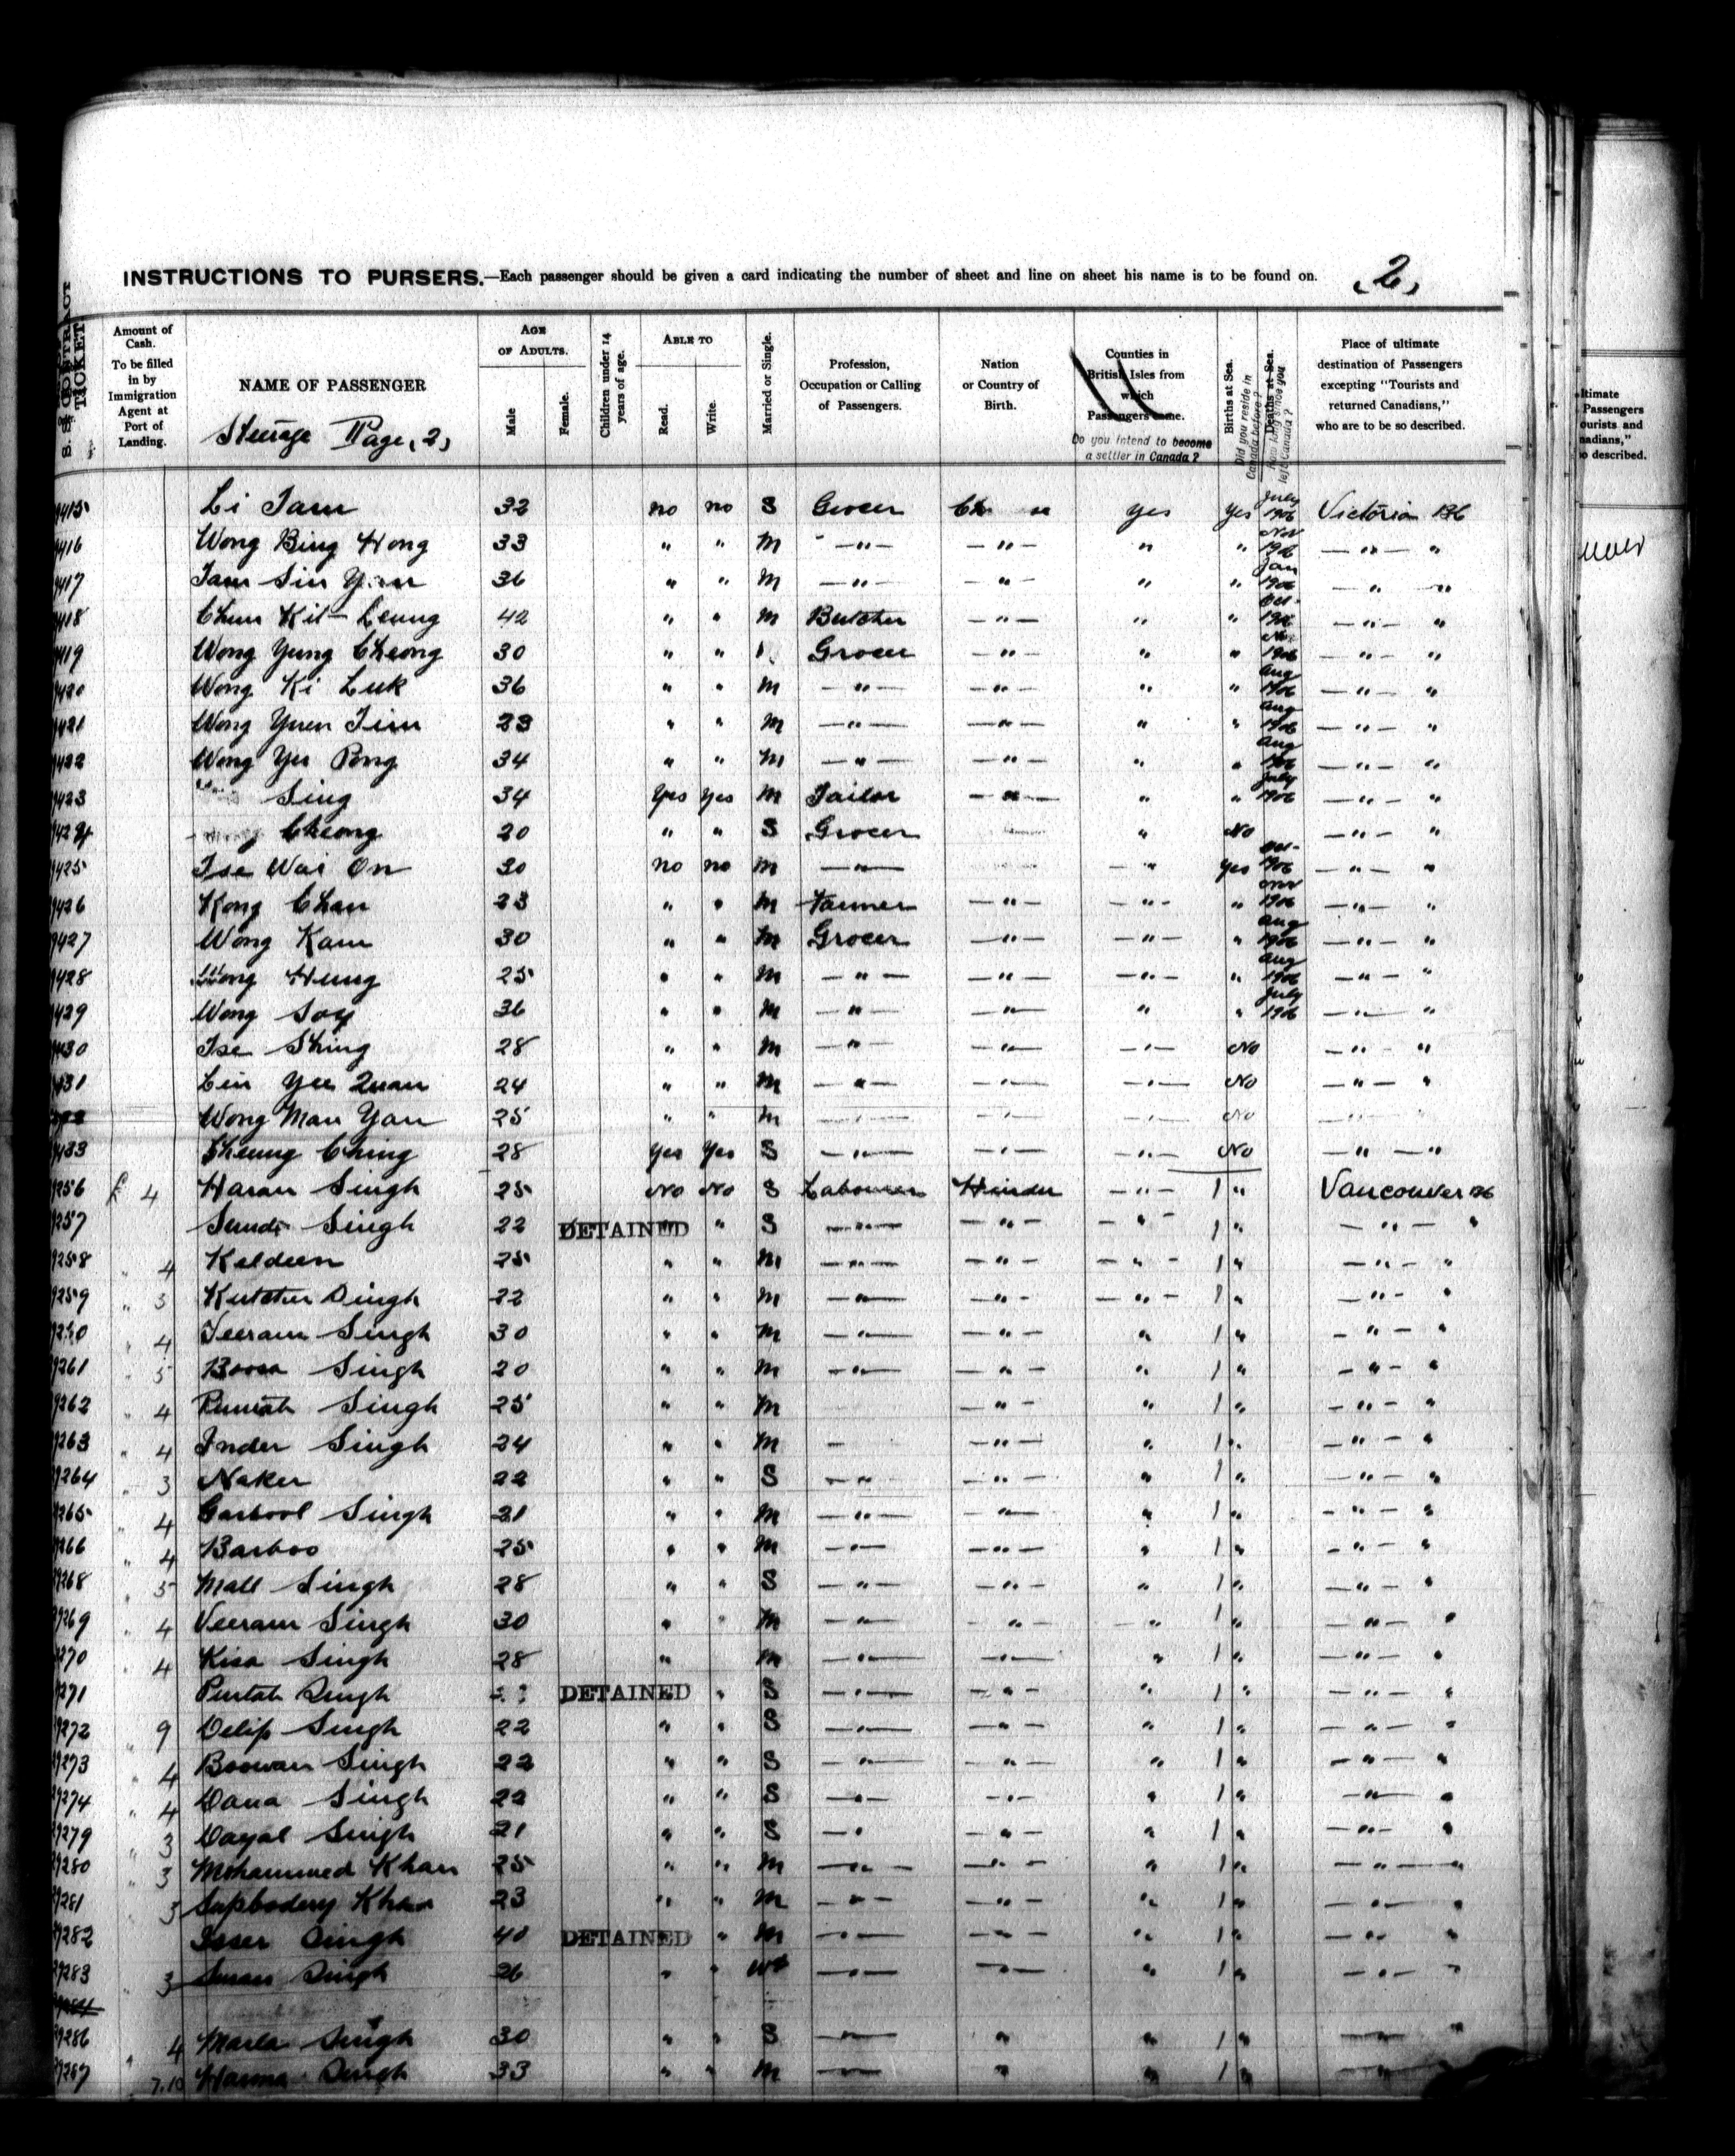 INSTRUCTIONS TO PURSERS.—Each passenger should be given a card indicating the number of sheet and line on sheet his name is to be found on. 2,
S. S. CONTRACT TICKET
Amount of Cash. To be filled in by Immigration Agent at Port of Landing.
NAME OF PASSENGER
Steerage Page, 2,
AGE OF ADULTS. Male Female.
Children under 14 years of age.
ABLE TO Read. Write.
Married or Single.
Profession, Occupation or Calling of Passengers.
Nation or Country of Birth.
Counties in British Isles from which Passengers come.
Do you intend to become a settler in Canada?
Births at Sea. Did you reside in Canada before?
Deaths at Sea. How long since you left Canada?
Place of ultimate destination of Passengers excepting "Tourists and returned Canadians," who are to be so described.
9415 Li Tam 32 no no S Grocer yes yes July 1906 Victoria BC
9416 Wong Bing Hong 33 " " M —"— —"— " " Nov 1906 —"— "
9417 Tam Sin 36 " " M —"— —"— " " Jan 1906 —"— "
9418 Chun Kit Leung 42 " " M Butcher —"— " " Oct 1906 —"— "
9419 Wong Yung Cheong 30 " " Grocer —"— " " 1906 —"— "
9420 Wong Ki Luk 36 " " M —"— —"— " " Aug 1906 —"— "
9421 Wong Yuen Tim 23 " " M —"— —"— " " Aug 1906 —"— "
9422 Wong Yee Pong 34 " " M —"— —"— " " Aug 1906 —"— "
9423 Sing 34 Yes Yes M Tailor —"— " " July 1906 —"— "
9424 Cheong 20 " " S Grocer " No —"— "
9425 Tse Wai On 30 no no M —"— —" yes Oct 1906 —"— "
9426 Kong Chan 23 " " M Farmer —"— —"— " 1906 —"— "
9427 Wong Kam 30 " " M Grocer —"— —"— " Aug 1906 —"— "
9428 Wong Hung 25 " " M —"— —"— —"— " Aug 1906 —"— "
9429 Wong Soy 36 " " M —"— —"— " " July 1906 —"— "
9430 Tse Shing 28 " " M —"— —"— —"— No —"— "
9431 Lin Yee Quan 24 " " M —"— —"— —"— No —"— "
Wong Man Yan 25 " " M —"— —"— —"— No
9433 Cheung Ching 28 Yes Yes S —"— —"— —"— No —"— "
9256 £ 4 Haran Singh 25 No No S Labourer Hindu —"— 1 " Vancouver BC
9257 Singh 22 DETAINED " S —"— —"— —"— 1 " —"— "
9258 " 4 Keldeen 25 " " M —"— —"— —"— 1 " —"— "
9259 " 3 Singh 22 " " M —"— —"— —"— 1 " —"— "
9260 " 4 Veeram Singh 30 " " M —"— —"— " 1 " —"— "
9261 " 5 Singh 20 " " M —"— —"— " 1 " —"— "
9262 " 4 Singh 25 " " M —"— " 1 " —"— "
9263 " 4 Inder Singh 24 " " M — —"— " 1 " —"— "
9264 " 3 Naker 22 " " S —"— —"— " 1 " —"— "
9265 " 4 Garbool Singh 21 " " M —"— —"— " 1 " —"— "
9266 " 4 Barboo 25 " " M —"— —"— " 1 " —"— "
9268 " 5 Mall Singh 28 " " S —"— —"— " 1 " —"— "
9269 " 4 Veeram Singh 30 " " M —"— —"— —" 1 " —"— "
9270 " 4 Kisa Singh 28 " M —"— —"— " 1 " —"— "
9271 Purtab Singh DETAINED " S —"— —"— " 1 " —"— "
9272 " 9 Delip Singh 22 " " S —"— —"— " 1 " —"— "
9273 " 4 Boowan Singh 22 " " S —"— —"— " 1 " —"— "
9274 " 4 Dana Singh 22 " " S —"— —"— " 1 " —"— "
9279 " 3 Dayal Singh 21 " " S —" —"— " 1 " —"— "
9280 " 3 Mohammed Khan 25 " " M —"— —"— " 1 " —"— "
9281 " 3 Khan 23 " " M —"— —"— " 1 " —"— "
9282 Isser Singh 40 DETAINED " M —"— —"— " 1 " —"— "
9283 " 3 Singh 26 " " —"— —"— " 1 " —"— "
9286 " 4 Marla Singh 30 " " S —"— " " 1 " —"— "
9287 " 7.10 Singh 33 " " M —"— " " 1 " —"— "
ltimate
Passengers
ourists and
nadians,"
o described.